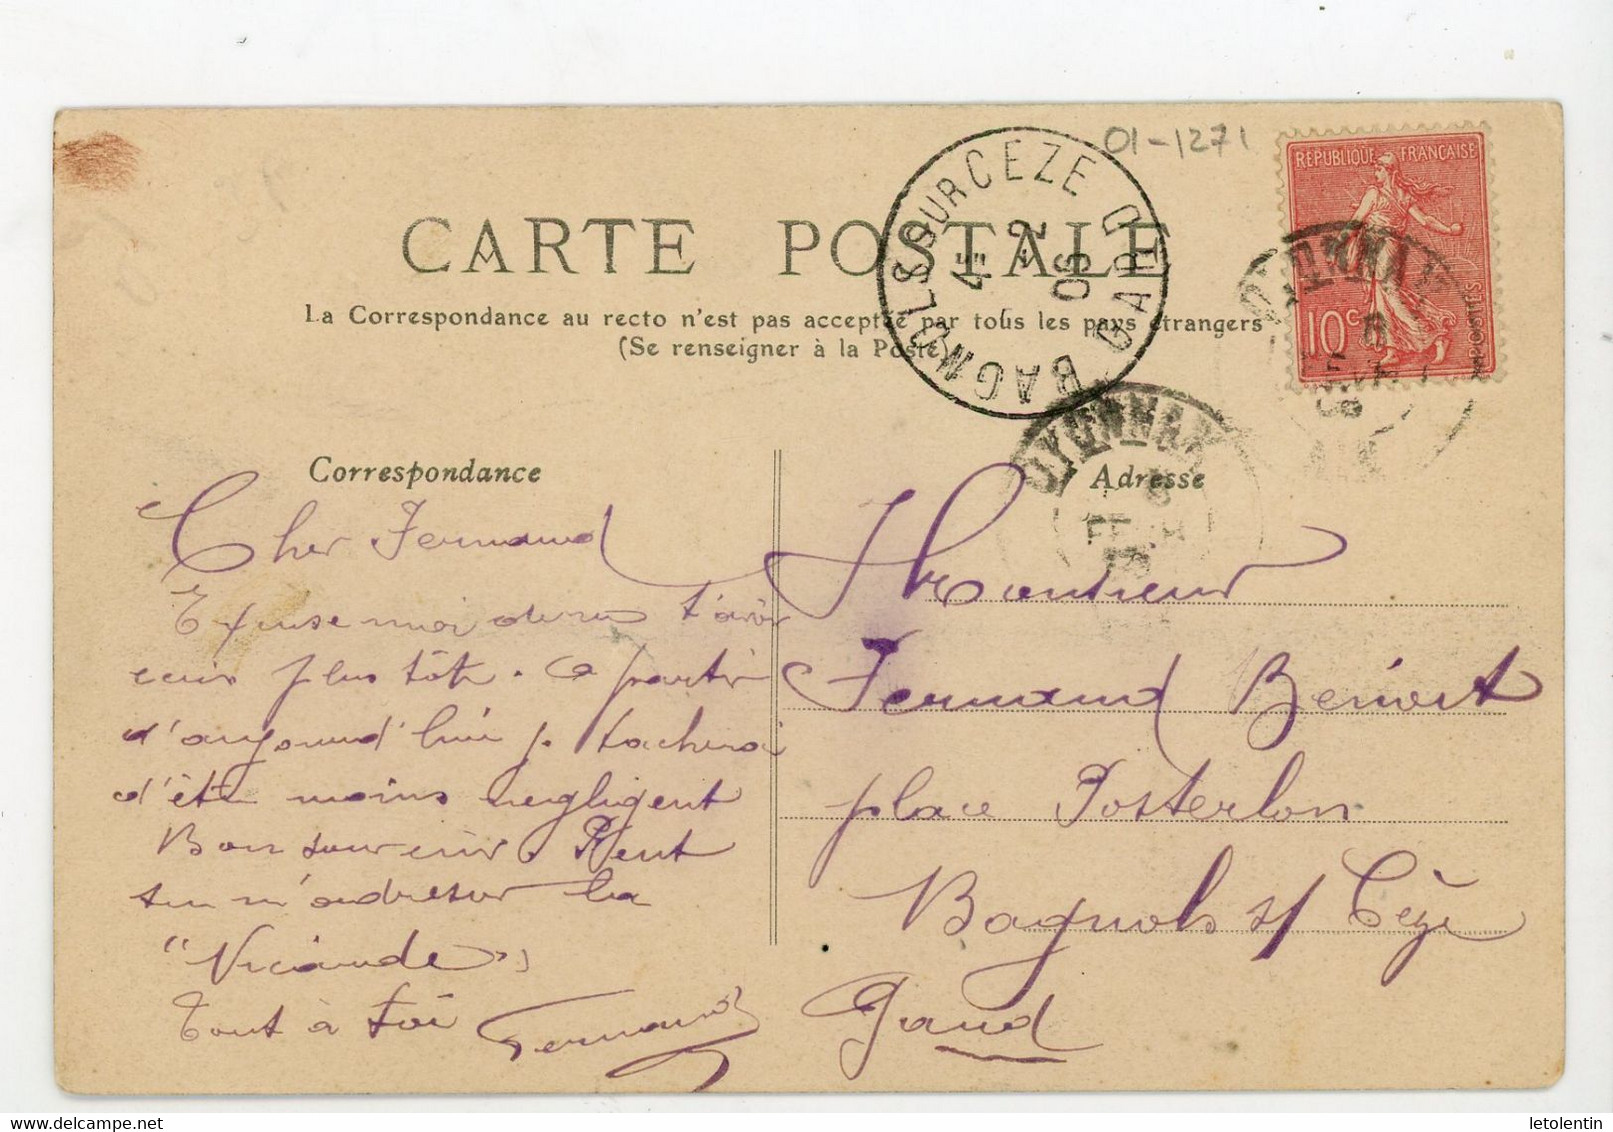 01-1271
REPUBLIQUE FRANÇAISE
10c
POSTES
BAGNOLS SUR CEZE GARD
4E
-2
06
OYONNAX
OYONNAX
CARTE POSTALE
La Correspondance au recto n'est pas acceptée par tous les pays étrangers
(Se renseigner à la Poste)
Correspondance
Cher Fernand
Excuse moi de ne t'avoir
écris plus tôt. a partir
d'aujourd'hui je tacherai
d'être moins negligent
Bon souvenir. Peut
tu m'adresser la
"Viciande"
Tout à toi Fernand
Adresse
Monsieur
Fernand Benoit
place Posterlon
Bagnols s/ Cèze
Gard
letolentin